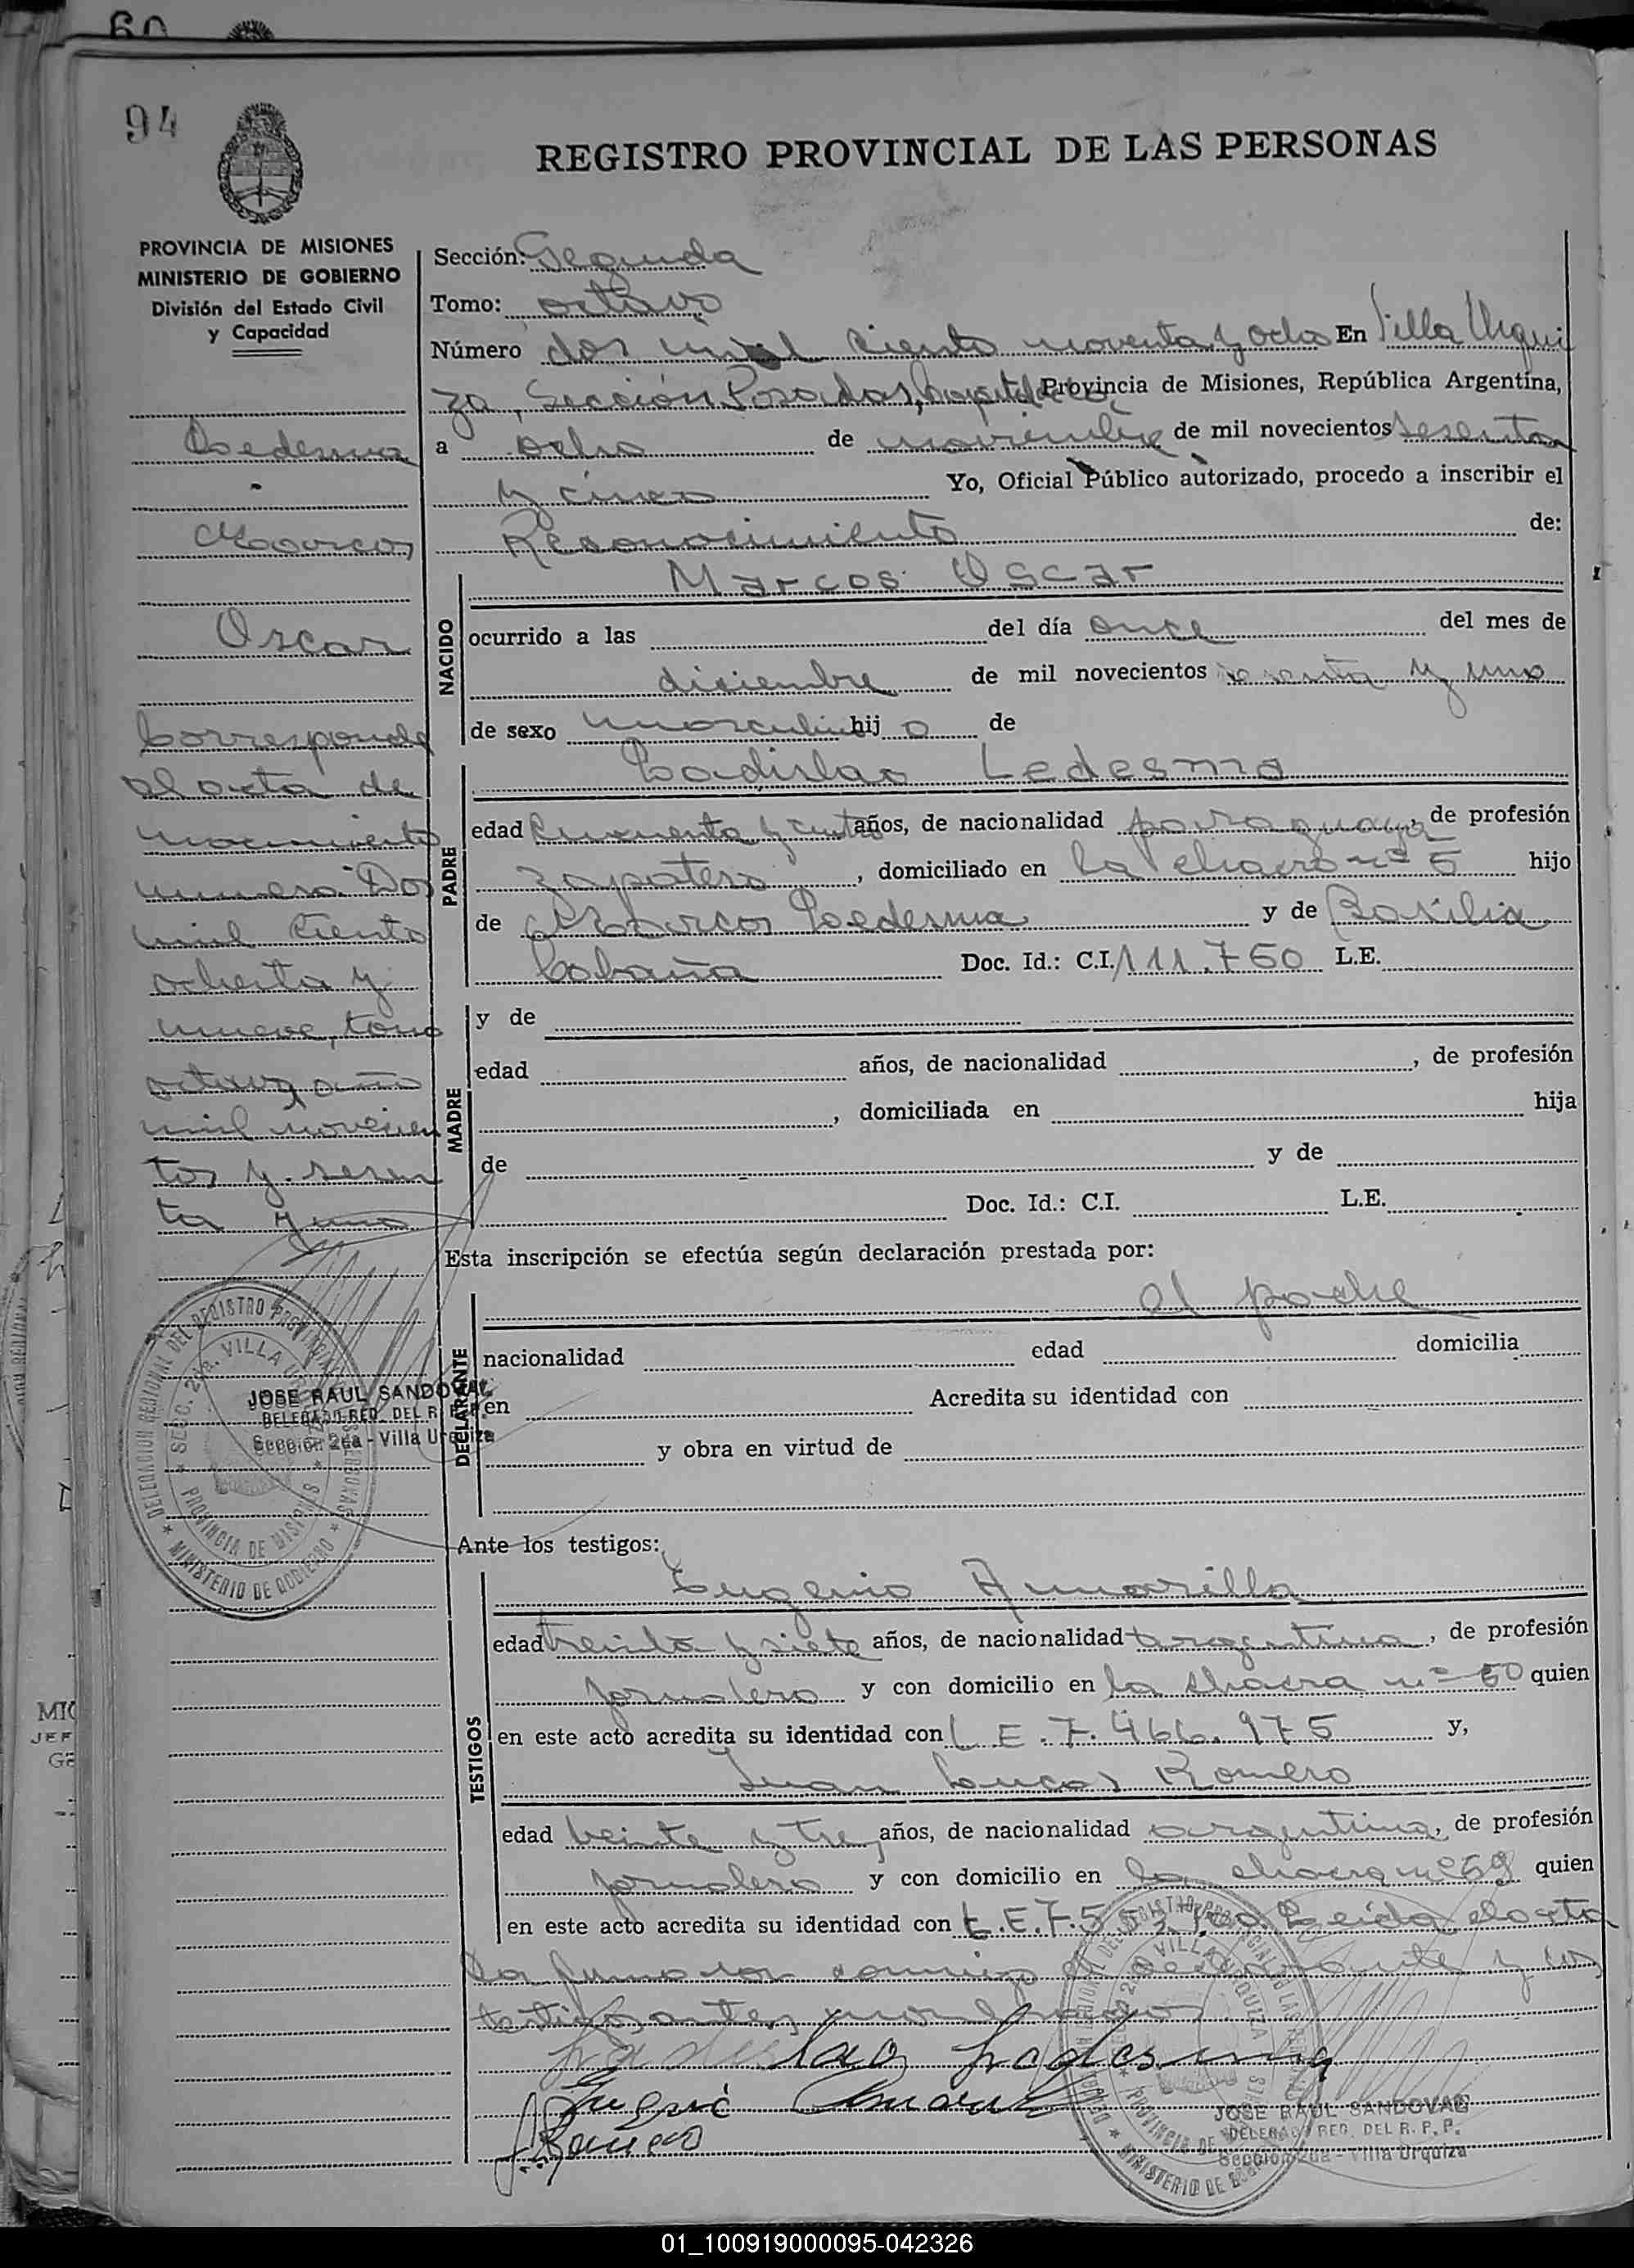 94
REGISTRO PROVINCIAL DE LAS PERSONAS
PROVINCIA DE MISIONES
MINISTERIO DE GOBIERNO
División del Estado Civil
y Capacidad
Ledesma
Marcos
Oscar
Corresponde
al acta de
nacimiento
numero Dos
mil ciento
ochenta y
nueve, tomo
octavo año
mil novecien
tos y sesen
ta y uno
Sección: Segunda
Tomo: octavo
Número dos mil ciento noventa y ocho En Villa Urqui
za, Sección Posadas, Capital de Provincia de Misiones, República Argentina,
a ocho de noviembre de mil novecientos sesenta
y cinco Yo, Oficial Público autorizado, procedo a inscribir el
Reconocimiento de:
NACIDO
Marcos Oscar
ocurrido a las del día once del mes de
diciembre de mil novecientos sesenta y uno
de sexo masculino hij o de
PADRE
Ladislao Ledesma
edad cincuenta y cuatro años, de nacionalidad paraguaya, de profesión
zapatero, domiciliado en la chacra nº 5 hijo
de Marcos Ledesma y de Basilia
Cabaña Doc. Id.: C.I. 111.760 L.E.
MADRE
y de
edad años, de nacionalidad , de profesión
, domiciliada en hija
de y de
Doc. Id.: C.I. L.E.
Esta inscripción se efectúa según declaración prestada por:
DECLARANTE
el padre
nacionalidad edad domicilia
en Acredita su identidad con
y obra en virtud de
DELEGACION REGIONAL DEL REGISTRO PROVINCIAL DE LAS PERSONAS
SECC. 2da. VILLA URQUIZA
PROVINCIA DE MISIONES
MINISTERIO DE GOBIERNO
JOSE RAUL SANDOVAL
DELEGADO REG. DEL R. P. P.
Sección 2da - Villa Urquiza
Ante los testigos:
TESTIGOS
Eugenio Amarilla
edad treinta y siete años, de nacionalidad argentina, de profesión
jornalero y con domicilio en la chacra nº 50 quien
en este acto acredita su identidad con L.E. 7.466.975 y,
Juan Lucas Romero
edad veinte y tres años, de nacionalidad argentina, de profesión
jornalero y con domicilio en la chacra nº 59 quien
en este acto acredita su identidad con L.E. 7.55 Leida el acta
la firma con conmigo el declarante y los
testigos antes mencionados
Ladislao Ledesma
Eugenio Amarilla
J. Romero
DELEGACION REGIONAL DEL REGISTRO PROVINCIAL DE LAS PERSONAS
2da VILLA URQUIZA
PROVINCIA DE MISIONES
MINISTERIO DE GOBIERNO
JOSE RAUL SANDOVAL
DELEGADO REG. DEL R. P. P.
Sección 2da - Villa Urquiza
01_100919000095-042326